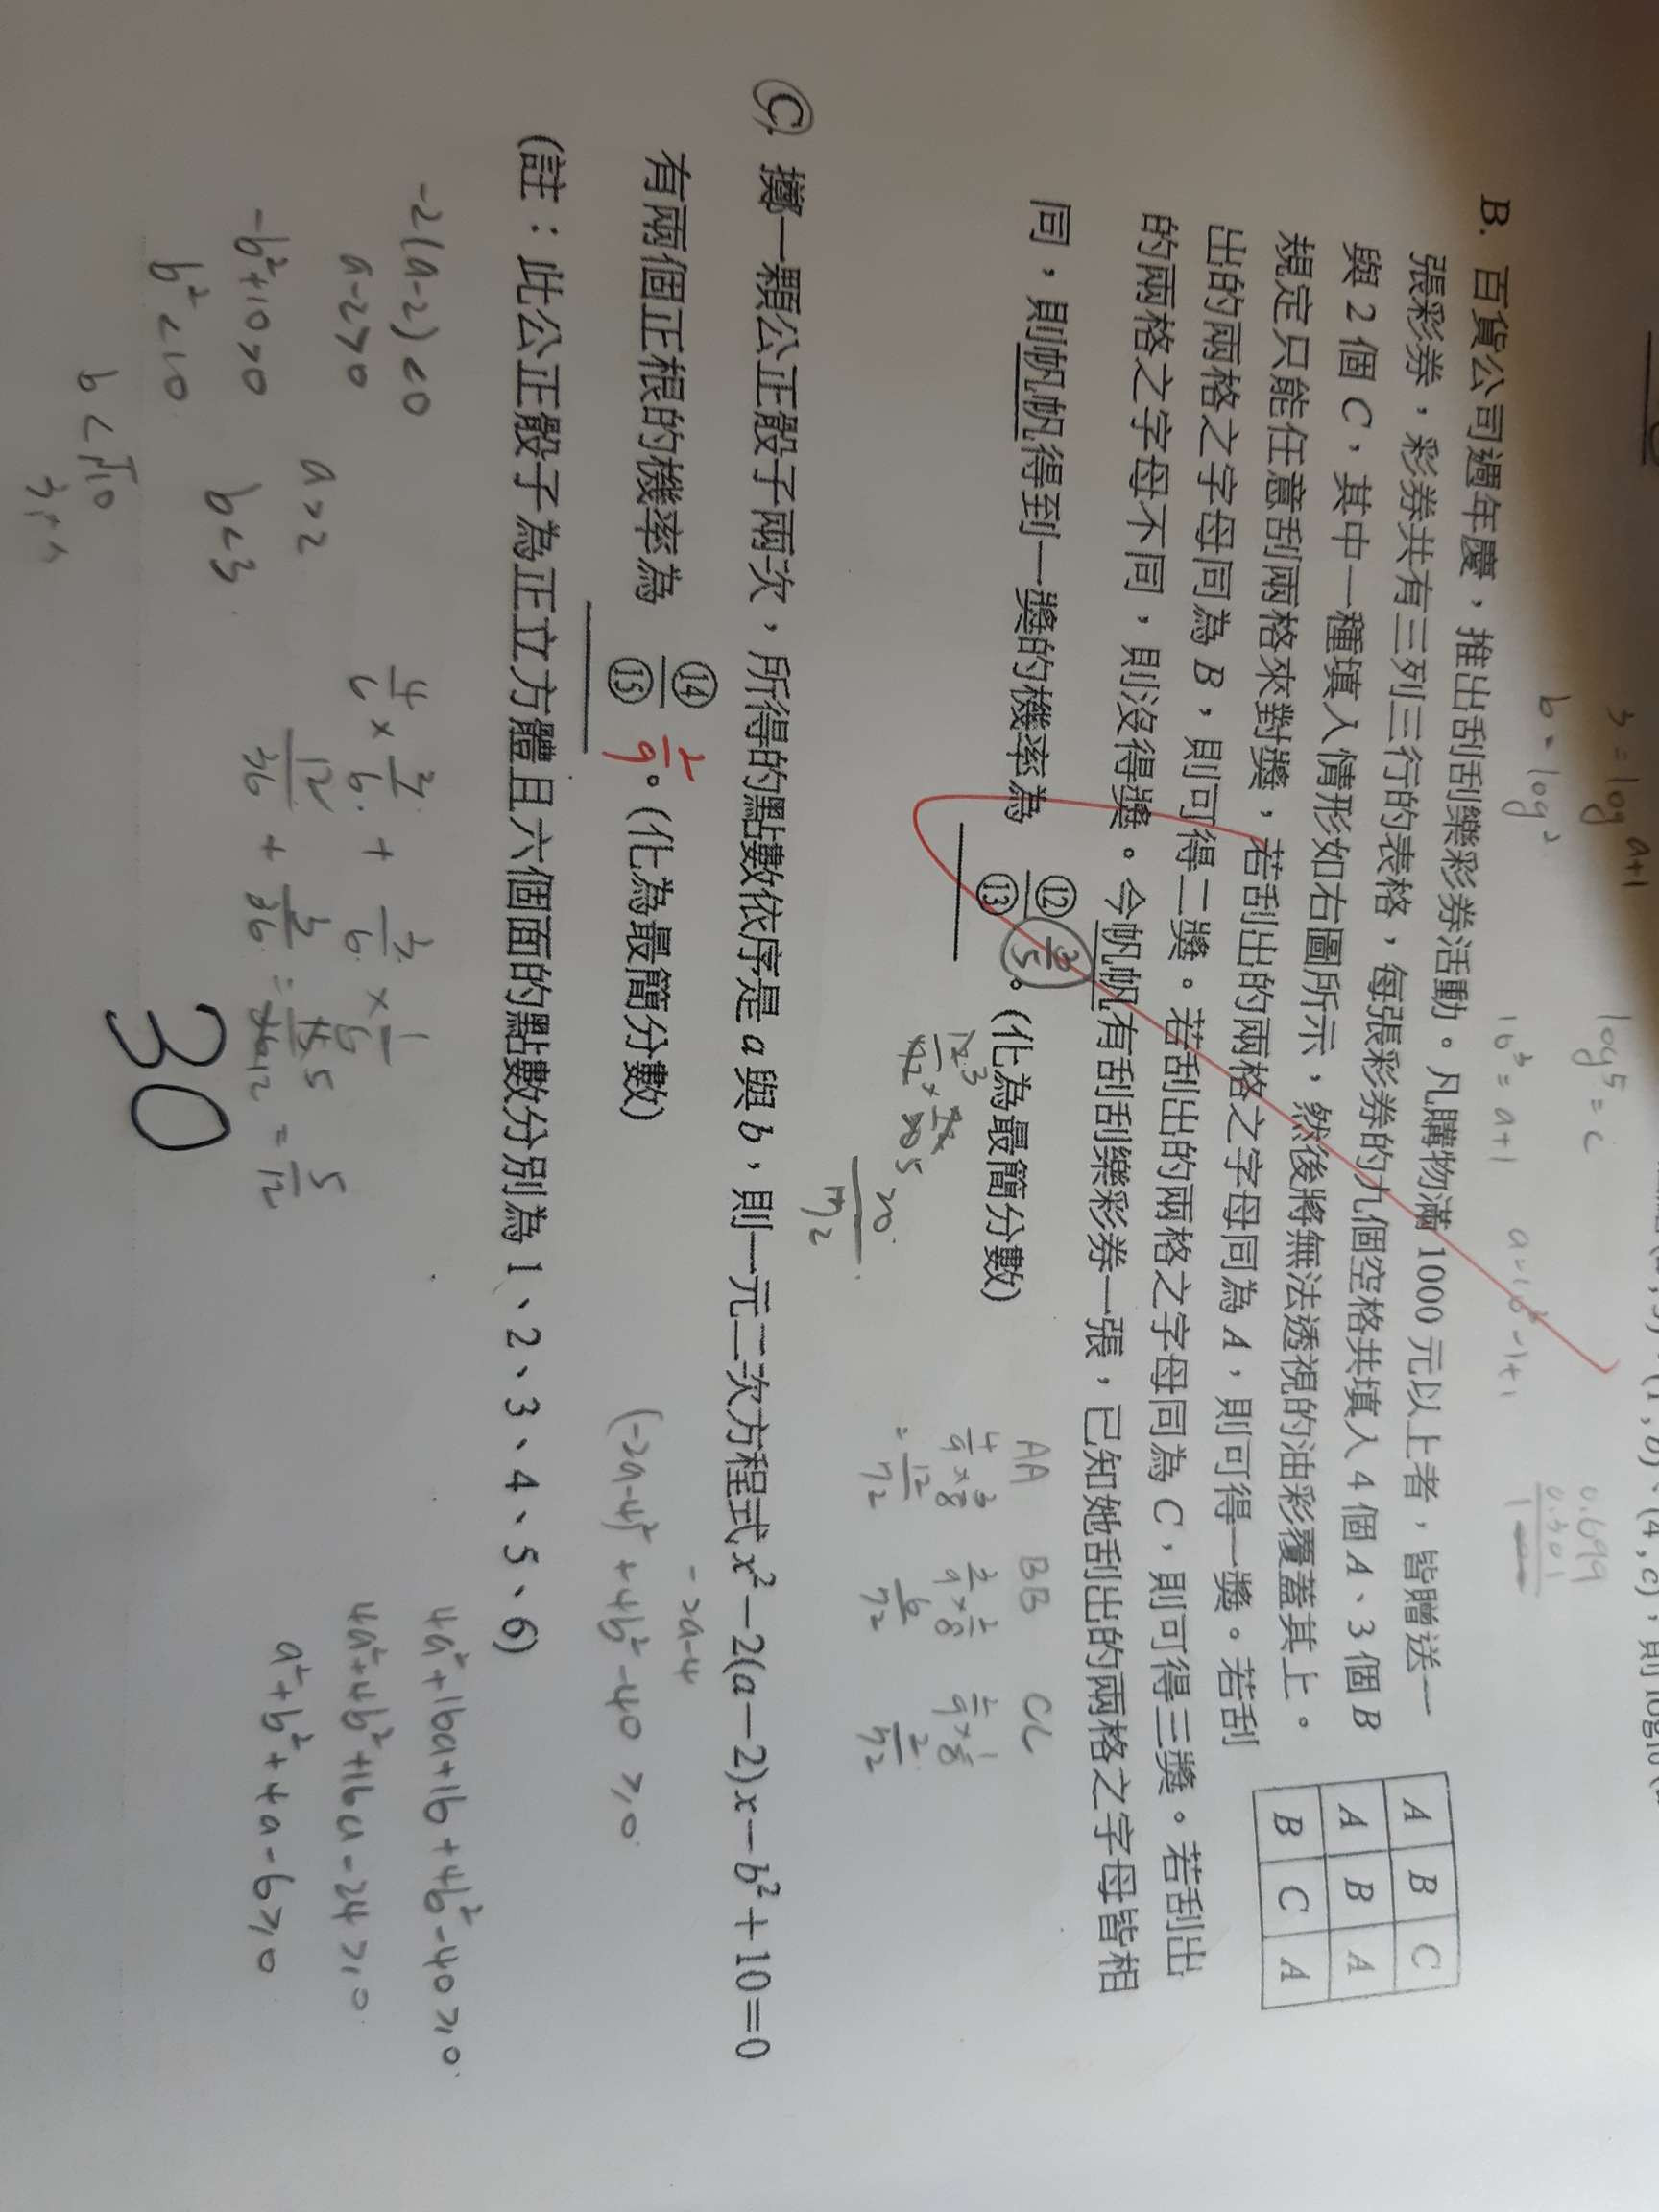 3 = log a+1
log 5 = c
0.699
0.301
b = log 2
10³ = a+1
B. 百貨公司週年慶，推出刮刮樂彩券活動。凡購物滿 1000 元以上者，皆贈送一
張彩券，彩券共有三列三行的表格，每張彩券的九個空格共填入 4 個 A、3 個 B
與 2 個 C，其中一種填入情形如右圖所示，然後將無法透視的油彩覆蓋其上。
規定只能任意刮兩格來對獎，若刮出的兩格之字母同為 A，則可得一獎。若刮
出的兩格之字母同為 B，則可得二獎。若刮出的兩格之字母同為 C，則可得三獎。若刮出
的兩格之字母不同，則沒得獎。今帆帆有刮刮樂彩券一張，已知她刮出的兩格之字母皆相
同，則帆帆得到一獎的機率為 ⑫/⑬ 3/5。(化為最簡分數)
A B C
A B A
B C A
AA BB CC
4/9 × 3/8 3/9 × 2/8 2/9 × 1/8
= 12/72 6/72 2/72
20/72
C. 擲一顆公正骰子兩次，所得的點數依序是 a 與 b，則一元二次方程式 x²－2(a－2)x－b²＋10＝0
有兩個正根的機率為 ⑭/⑮ 2/9。(化為最簡分數)
(註：此公正骰子為正立方體且六個面的點數分別為 1、2、3、4、5、6)
-2a-4
(-2a-4)² + 4b² - 40 ≥ 0
4a² + 16a + 16 + 4b² - 40 ≥ 0
4a² + 4b² + 16a - 24 ≥ 0
a² + b² + 4a - 6 ≥ 0
-2(a-2) < 0
a-2 > 0
a > 2
-b² + 10 > 0
b < 3
b² < 10
b < √10
= 5/12
30